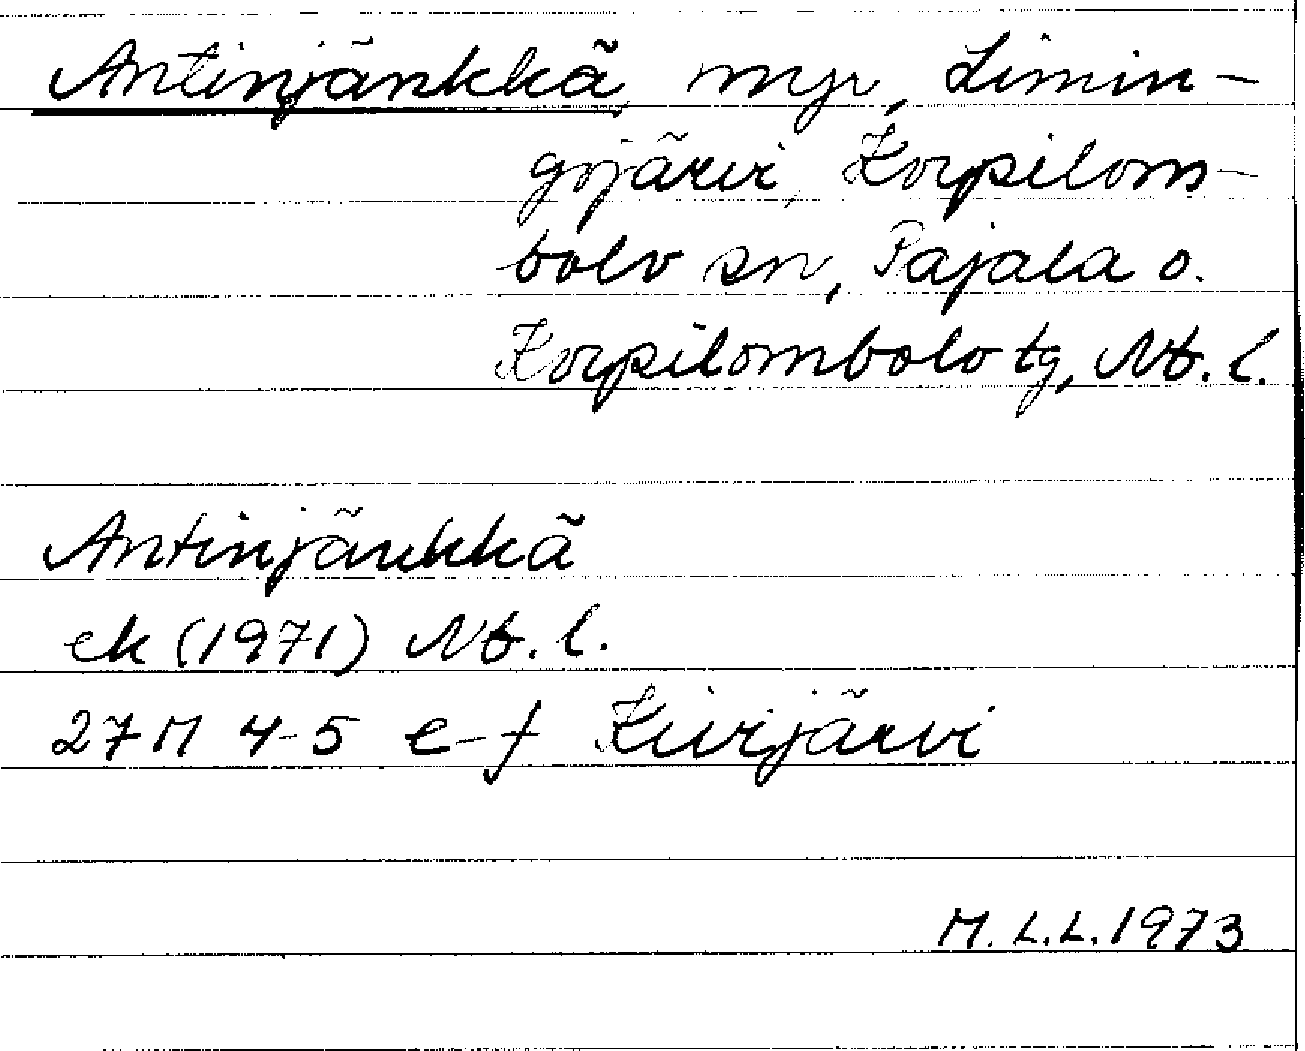 Antinjänkkä, myr, Limin-
gojärvi, Korpilom-
bolo sn, Pajala o.
Korpilombolo tg, Nb. l.
Antinjänkkä
ek (1971) Nb. l.
27 M 4-5 e-f Kivijärvi
M. L. L. 1973